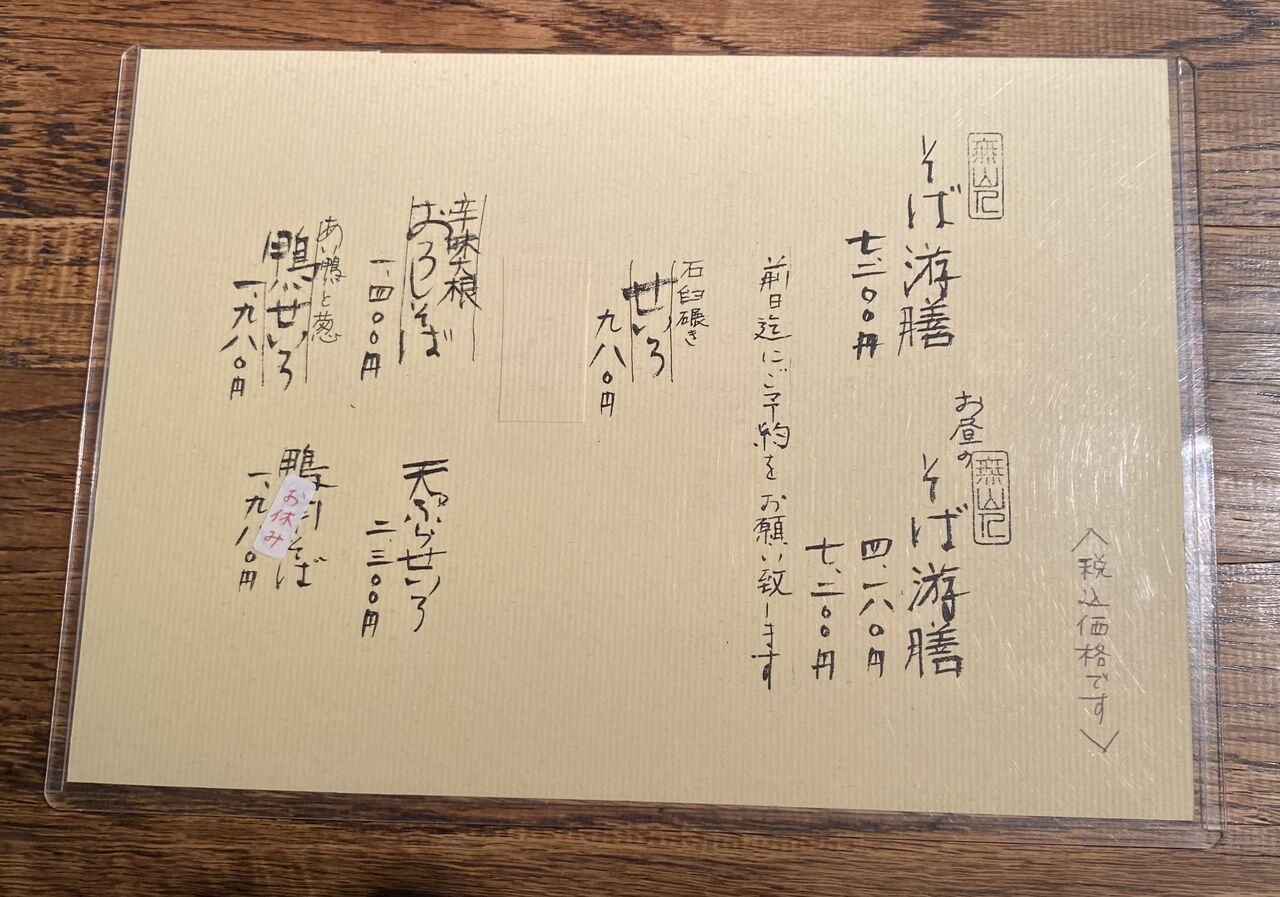 〈税込価格です〉
無山人
そば游膳
七、二〇〇円
お昼の
無山人
そば游膳
四、一八〇円
七、二〇〇円
前日迄にご予約をお願い致します
石臼碾き
せいろ
九八〇円
辛味大根
おろしそば
一、四〇〇円
天ぷらせいろ
二、三〇〇円
あい鴨と葱
鴨せいろ
一、九八〇円
鴨
そば
お休み
一、九八〇円